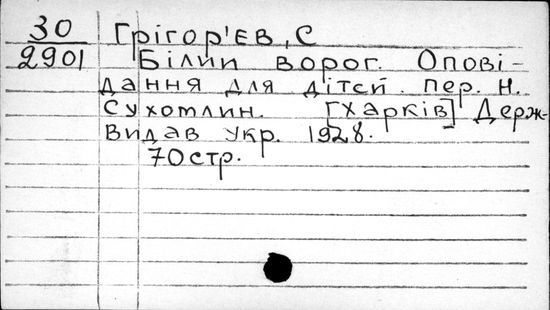 30
2901
Грігор'єв, С
Білий ворог. Опові-
дання для дітей. пер. Н.
Сухотлин. [Харків] Держ-
Видав Укр. 1928.
70 стр.